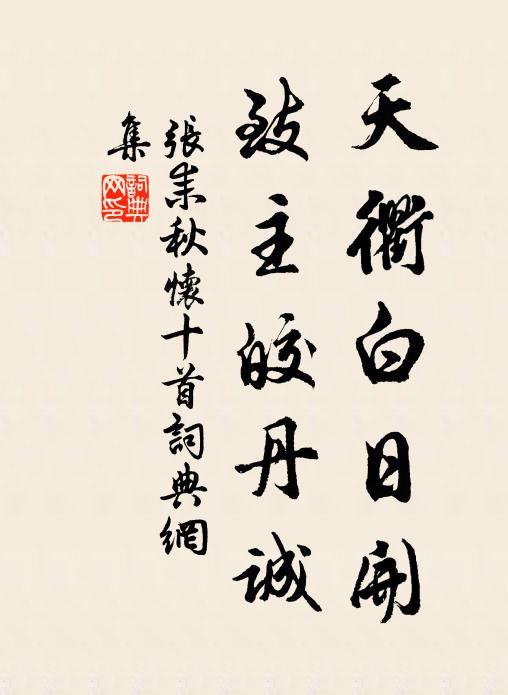 天衢白日開
致主皎丹誠
張耒秋懷十首詞典網
集
詞典
网印